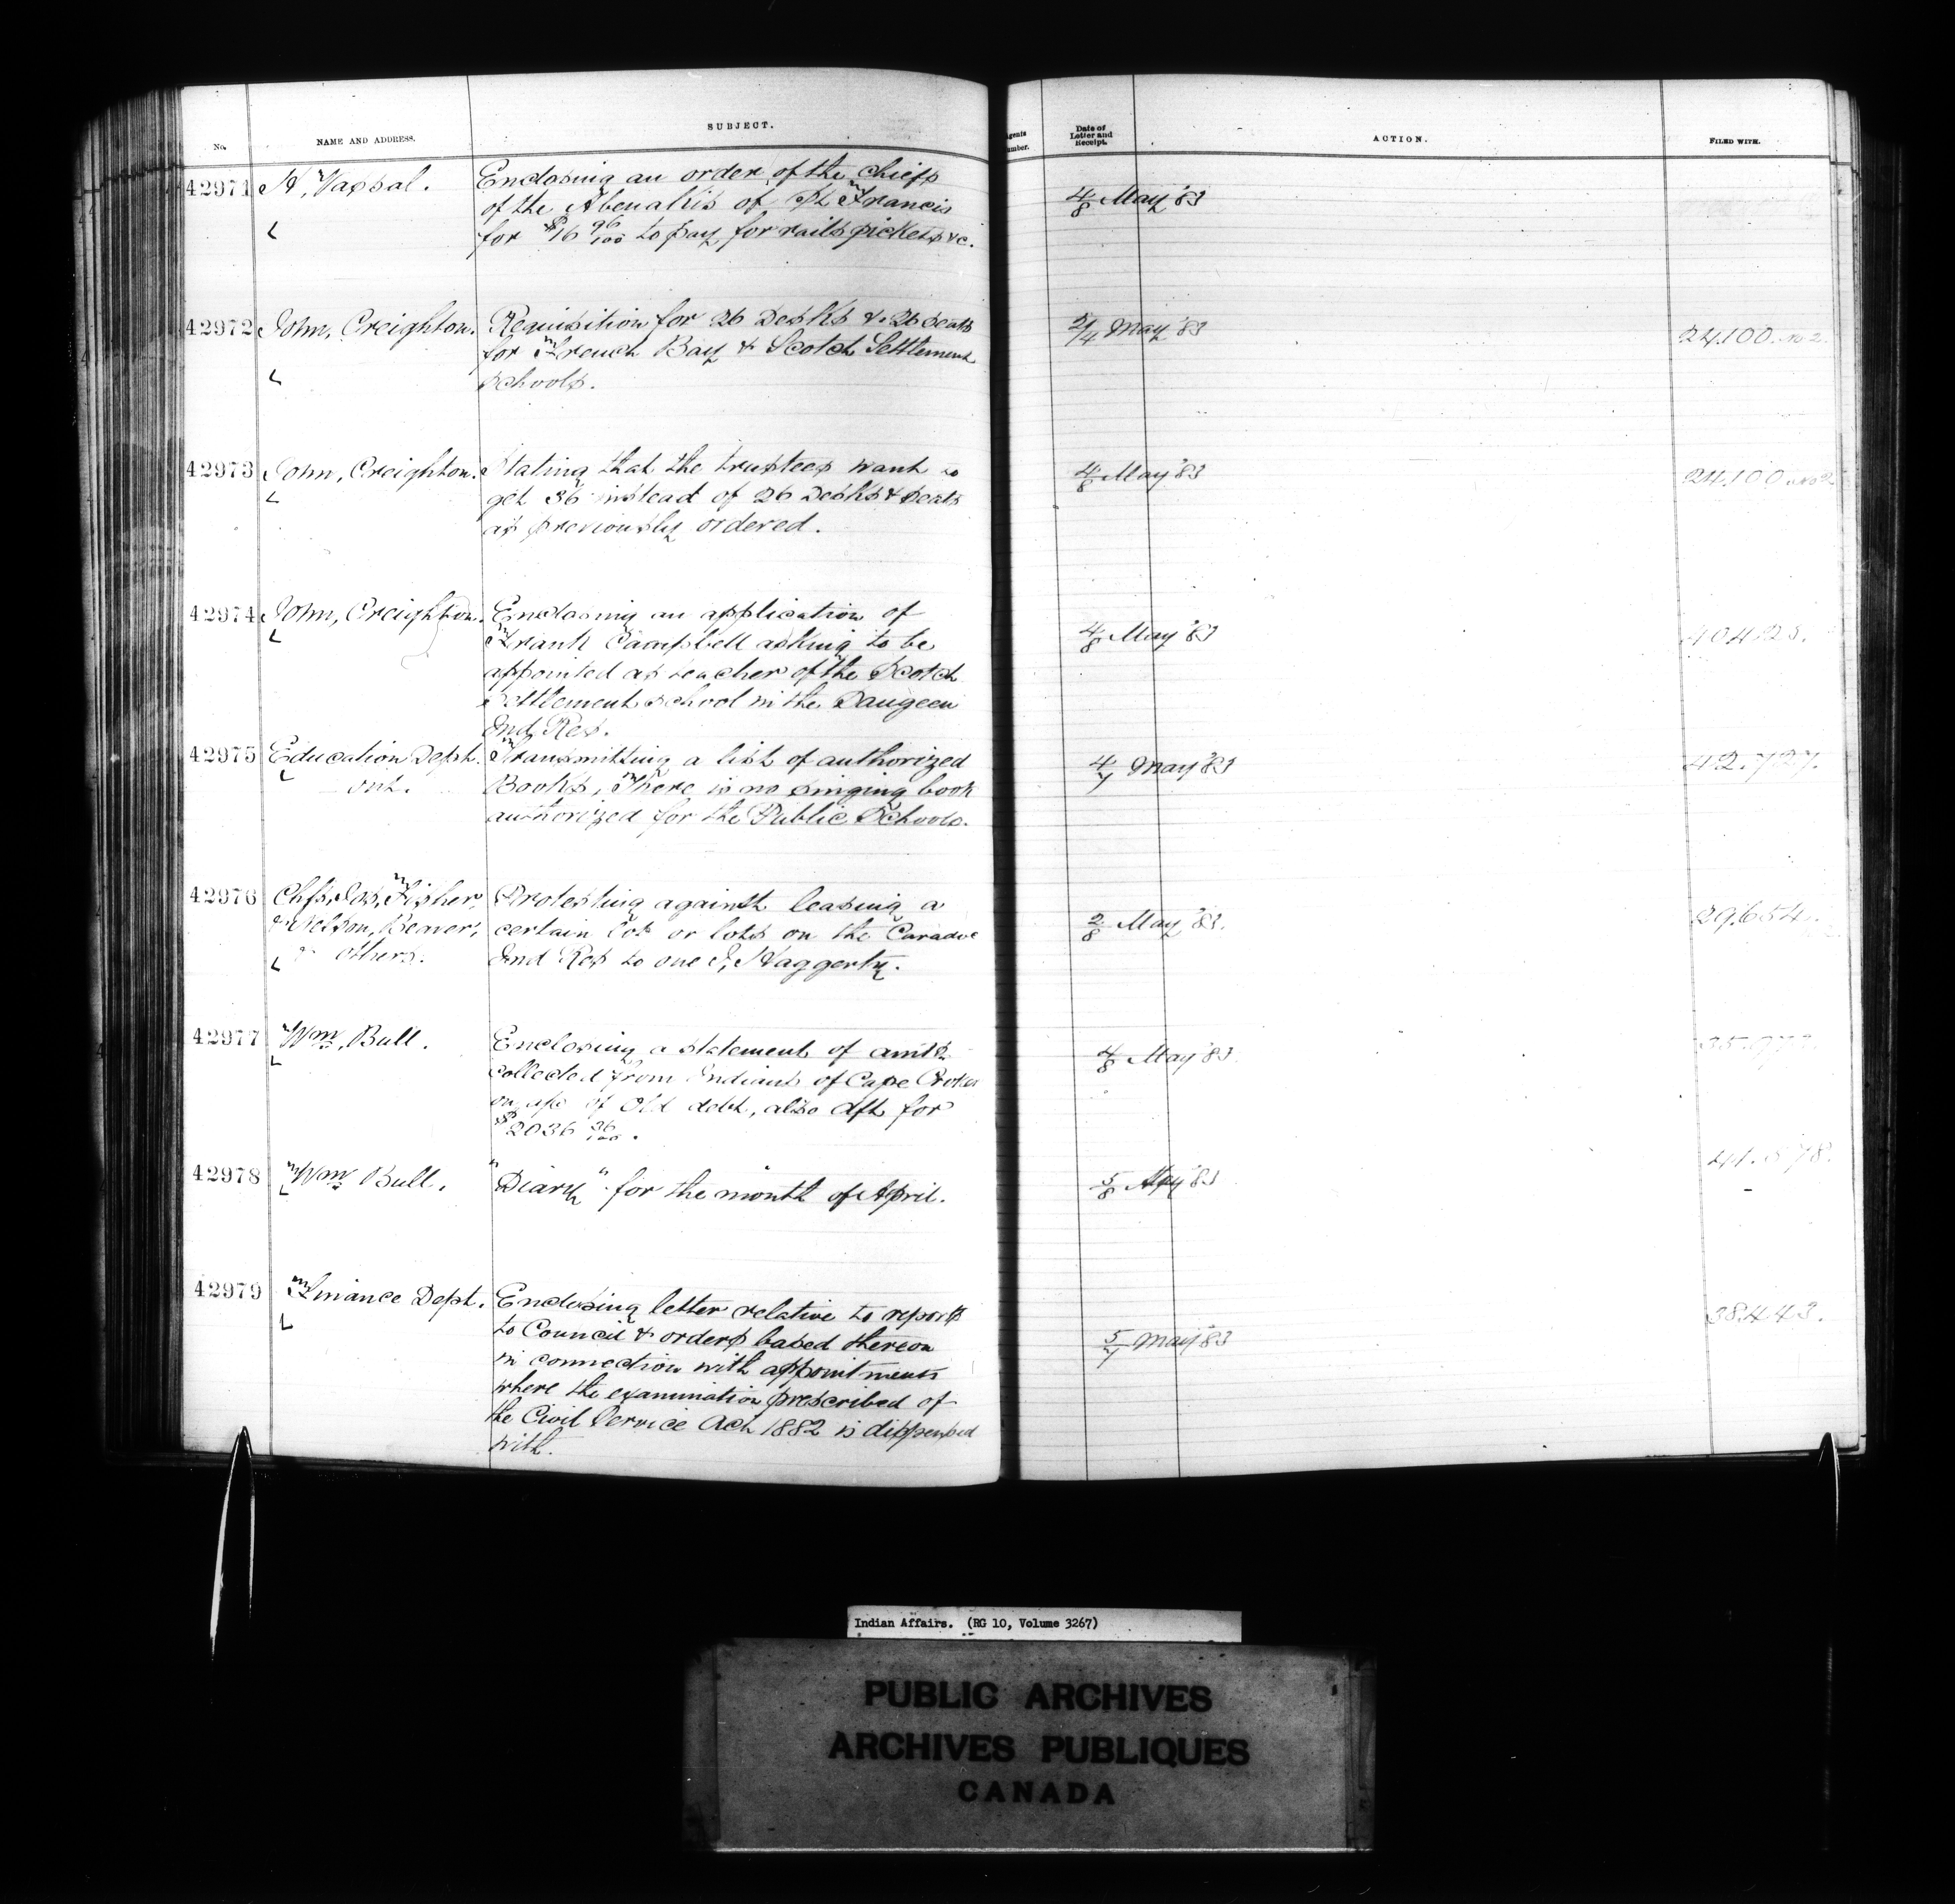 No.
NAME AND ADDRESS.
SUBJECT.
Agents Number.
Date of Letter and Receipt.
ACTION.
FILED WITH.
42971
H, Vassal.
Enclosing an order of the chiefs
of the Abenakis of St Francis
for $16 96/100 to pay for rails pickets &c.
4/8 May '83
42972
John, Creighton.
Requisition for 26 Desks & 26 seats
for French Bay & Scotch Settlement
schools.
5/4 May '83
24.100. no 2.
42973
John, Creighton.
Stating that the trustees want to
get 36 instead of 26 Desks & seats
as previously ordered.
4/8 May '83
24.100 no 2
42974
John, Creighton.
Enclosing an application of
Frank Campbell asking to be
appointed as teacher of the Scotch
Settlement school in the Saugeen
Ind, Res.
4/8 May '83
40428.
42975
Education Dept.
Ont.
Transmitting a list of authorized
Books, There is no singing book
authorized for the Public Schools.
4/7 May '83
42.727.
42976
Chfs, Jos, Fisher,
& Nelson, Beaver,
& others.
Protesting against leasing a
certain lot or lots on the Caradoc
Ind Res to one J, Haggerty.
2/8 May '83.
29.654.
42977
Wm, Bull.
Enclosing a statement of amts
collected from Indians of Cape Croker
on a/c of Old debt, also dft for
$2036 36/100.
4/8 May '83.
42978
Wm Bull.
"Diary" for the month of April.
5/8 May '83
41.578.
42979
Finance Dept.
Enclosing letter relative to reports
to Council & orders based thereon
in connection with appointments
where the examination prescribed of
the Civil Service Act 1882 is dispensed
with.
5/7 May '83
38.443.
Indian Affairs. (RG 10, Volume 3267)
PUBLIC ARCHIVES
ARCHIVES PUBLIQUES
CANADA